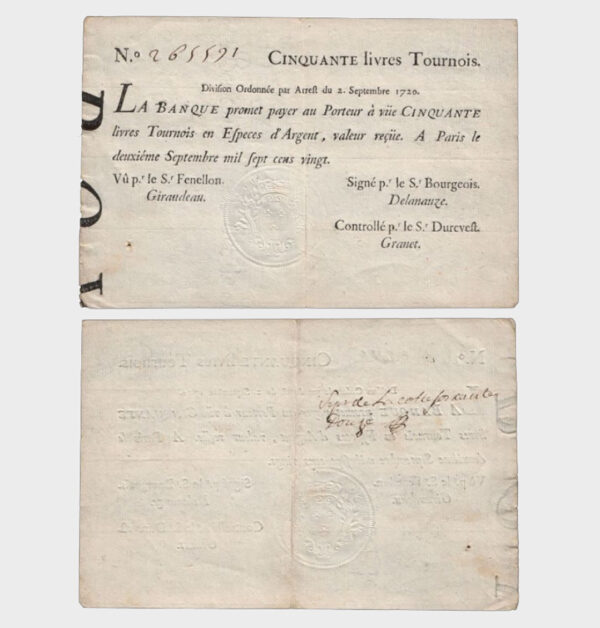 N.º 265591 CINQUANTE livres Tournois.
Division Ordonnée par Arrest du 2. Septembre 1720.
LA BANQUE promet payer au Porteur à vüe CINQUANTE
livres Tournois en Especes d'Argent, valeur reçüe. A Paris le
deuxiéme Septembre mil sept cens vingt.
Vû p.r le S.r Fenellon.
Giraudeau.
Signé p.r le S.r Bourgeois.
Delanauze.
Controllé p.r le S.r Durevest.
Granet.